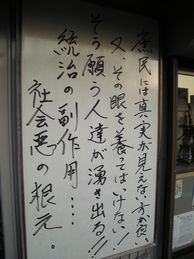 庶民には真実が見えない方が良い
又、その眼を養ってはいけない!
そう願う人達が湧き出る!!
統治の副作用……
社会悪の根元。